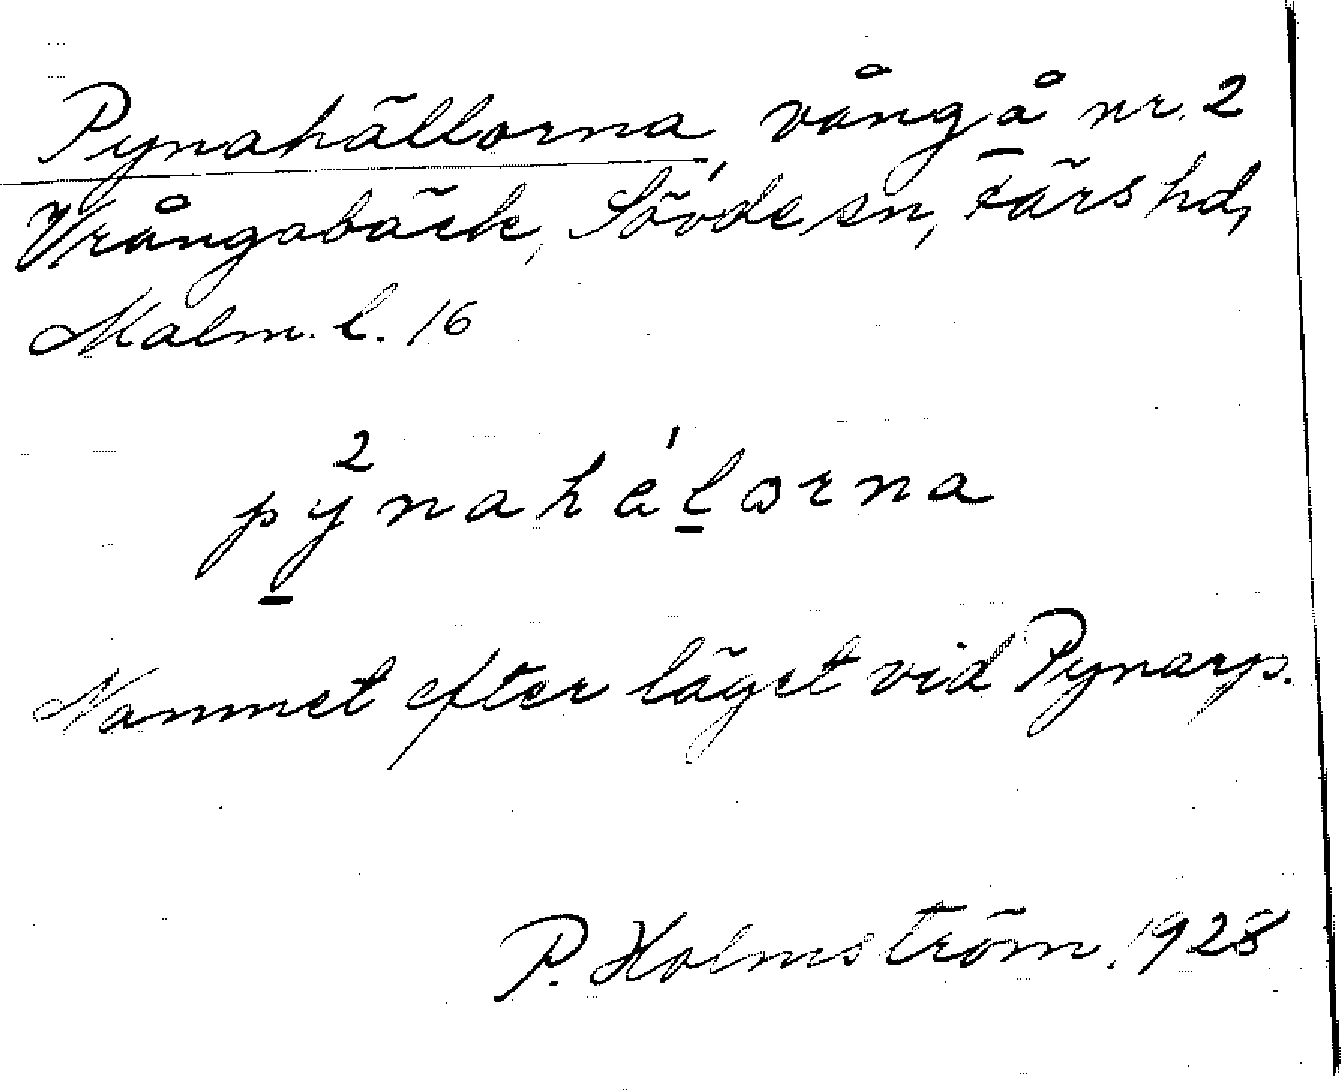 Pynahällorna, vång å nr. 2
Vrångabäck, Sövde sn, Färs hd,
Malm. l. 16
py̱²nahé̱lorna
Namnet efter läget vid Pynarp.
P. Holmström. 1928